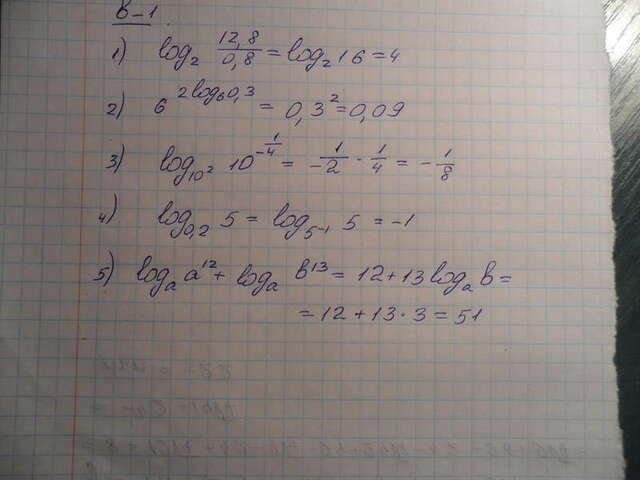 В-1
1) log₂ 12,8/0,8 = log₂ 16 = 4
2) 6^(2log₆0,3) = 0,3² = 0,09
3) log₁₀² 10^(-1/4) = -1/2 · 1/4 = -1/8
4) log₀,₂ 5 = log₅₋₁ 5 = -1
5) logₐ a¹² + logₐ в¹³ = 12 + 13 logₐ в =
= 12 + 13 · 3 = 51